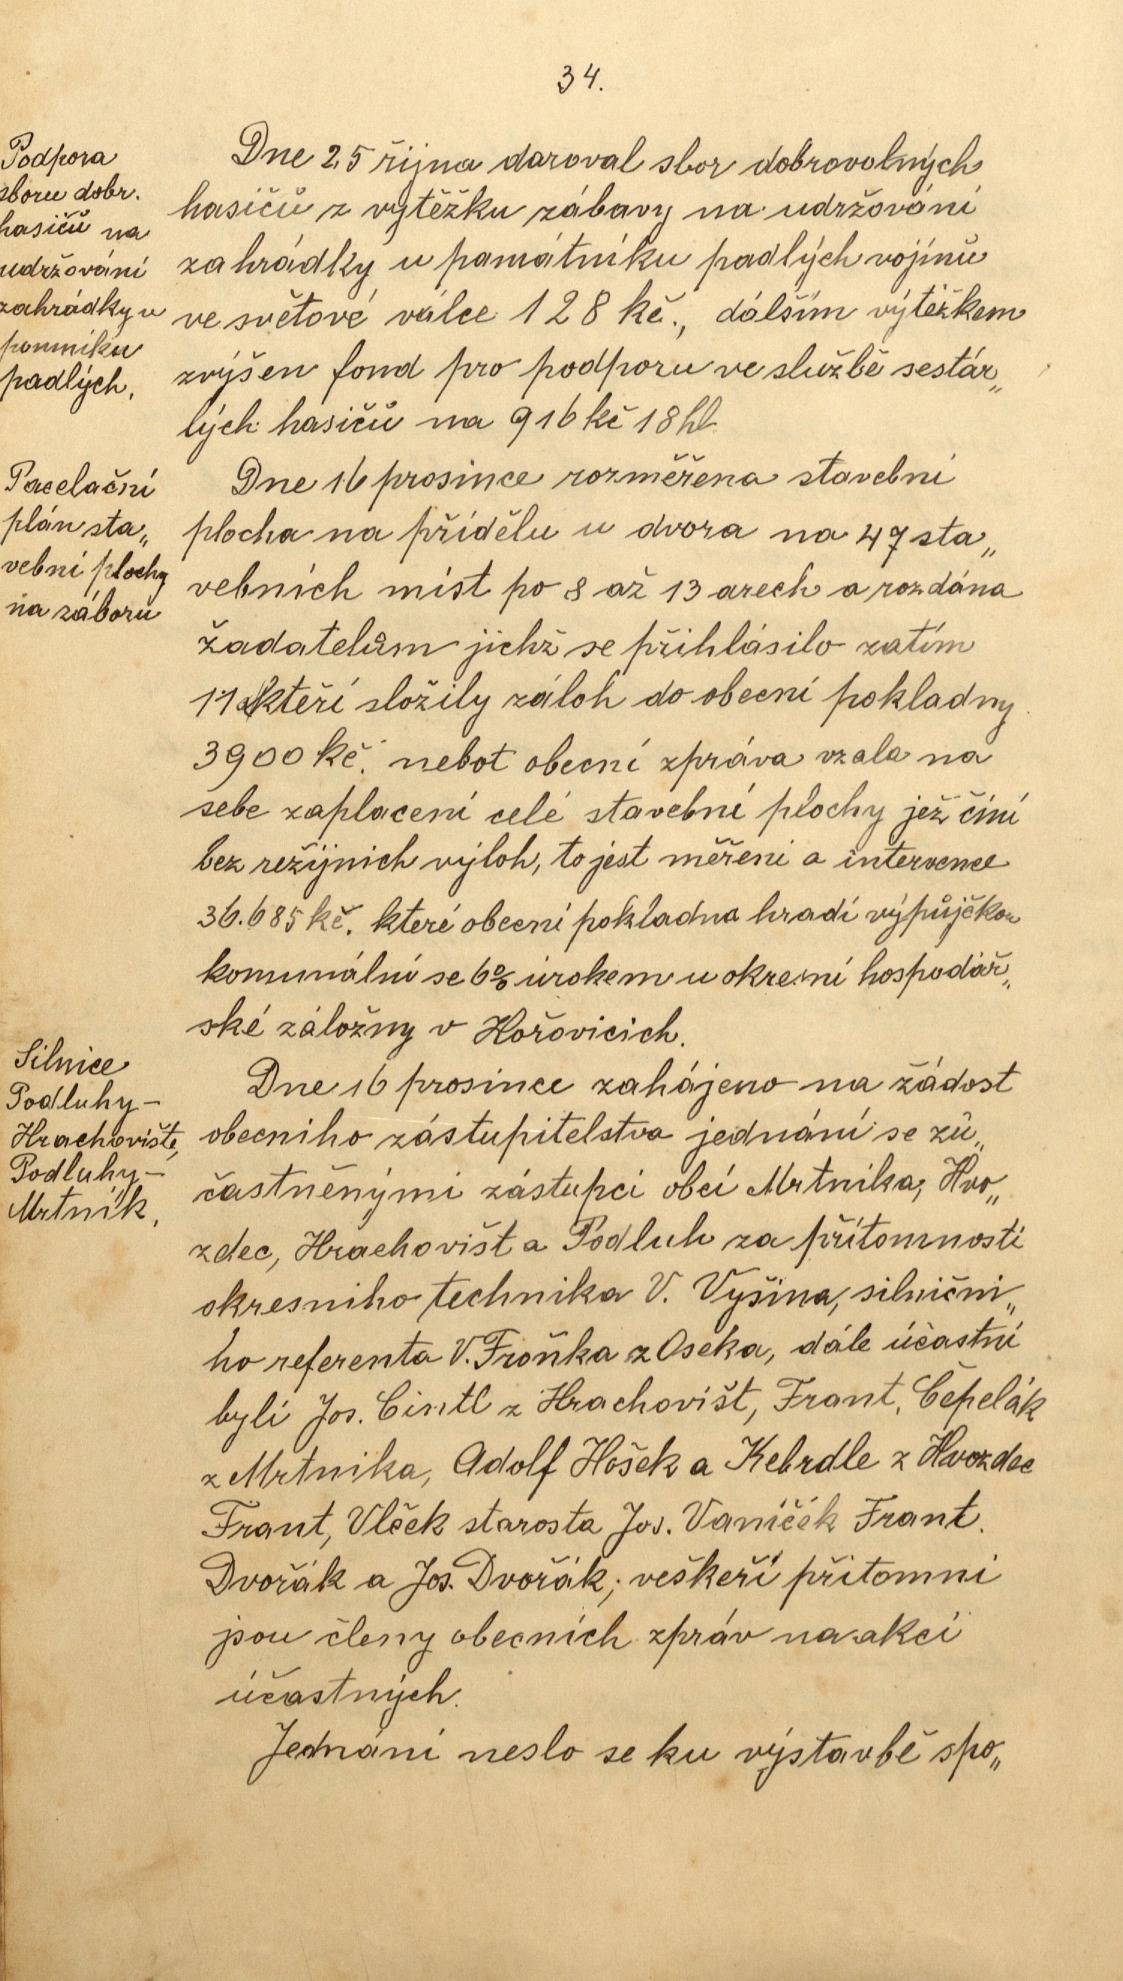 34.
Podpora
sboru dobr.
hasičů na
udržování
zahrádky u
pomniku
padlých.
Dne 25 řijna daroval sbor dobrovolných
hasičů z vytěžku zábavy na udržování
zahrádky u památníku padlých vojínů
ve světové válce 128 kč., dálším výtěžkem
zvýšen fond pro podporu ve službě sestár„
lých hasičů na 916 kč 18 hl
Parcelační
plán sta„
vebni plochy
na záboru
Dne 16 prosince rozměřena stavebni
plocha na přídělu u dvora na 47 sta„
vebnich mist po 8 až 13 arech a rozdána
žadatelům jichž se přihlásilo zatím
11 kteří složily záloh do obecní pokladny
3900 kč. nebot obecní zpráva vzala na
sebe zaplacení celé stavební plochy jež činí
bez režijnich vyloh, to jest měřeni a intervence
36.685 kč. které obecní pokladna hradí výpůjčkou
komunální se 6% úrokem u okresní hospodář„
ské záložny v Hořovicich.
Silnice
Podluhy –
Hrachoviště,
Podluhy –
Mrtník.
Dne 16 prosince zahájeno na žádost
obecniho zástupitelstva jednání se zů„
častněnými zástupci obcí Mrtnika, Hvo„
zdec, Hrachovišt a Podluh za přítomnosti
okresniho technika V. Vyšina, silnični„
ho referenta V. Froňka z Oseka, dále účastni
byli Jos. Cintl z Hrachovišt, Frant. Čepelák
z Mrtnika, Adolf Hošek a Kebrdle z Hvozdec
Frant, Vlček starosta Jos. Vaníček Frant.
Dvořák a Jos. Dvořák; veškeří přitomni
jsou členy obecních zpráv na akci
účastných.
Jednání neslo se ku výstavbě spo„